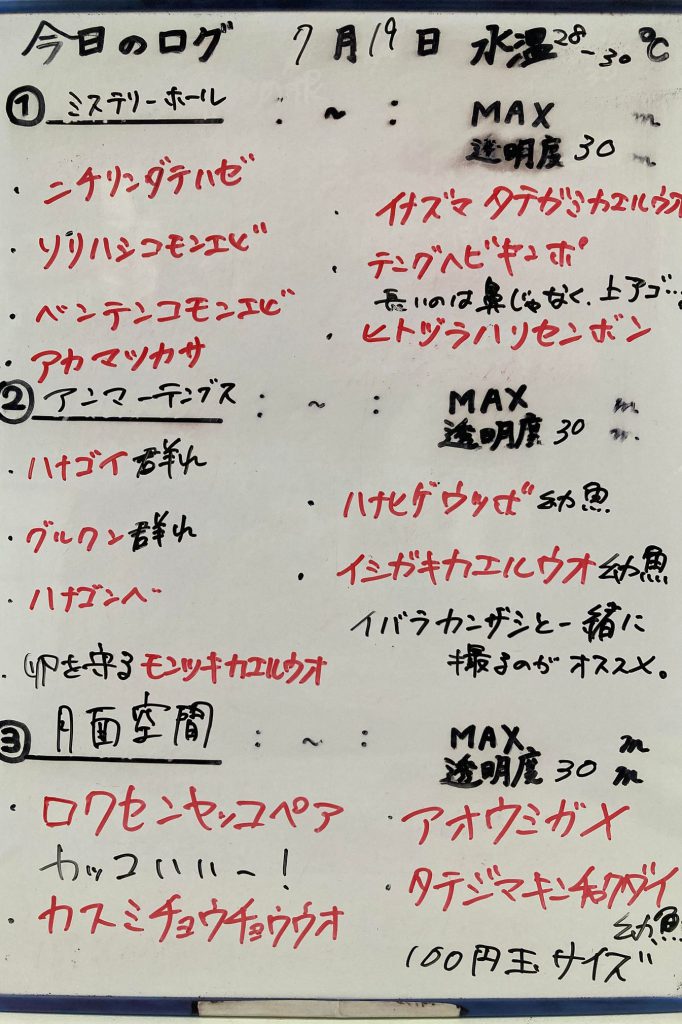 今日のログ 7月19日 水温28-30℃
① ミステリーホール : ~ : MAX m
透明度 30 m
・ニチリンダテハゼ
・ソリハシコモンエビ
・ベンテンコモンエビ
・アカマツカサ
・イナズマタテガミカエルウオ
・テングヘビギンポ
長いのは鼻じゃなく、上アゴ…
・ヒトヅラハリセンボン
② アンマーテングス : ~ : MAX m
透明度 30 m
・ハナゴイ群れ
・グルクン群れ
・ハナゴンベ
・卵を守るモンツキカエルウオ
・ハナヒゲウツボ幼魚
・イシガキカエルウオ幼魚
イバラカンザシと一緒に
撮るのがオススメ。
③ 月面空間 : ~ : MAX m
透明度 30 m
・ロクセンヤッコペア
カッコいい~!
・カスミチョウチョウウオ
・アオウミガメ
・タテジマキンチャクダイ
幼魚
100円玉サイズ